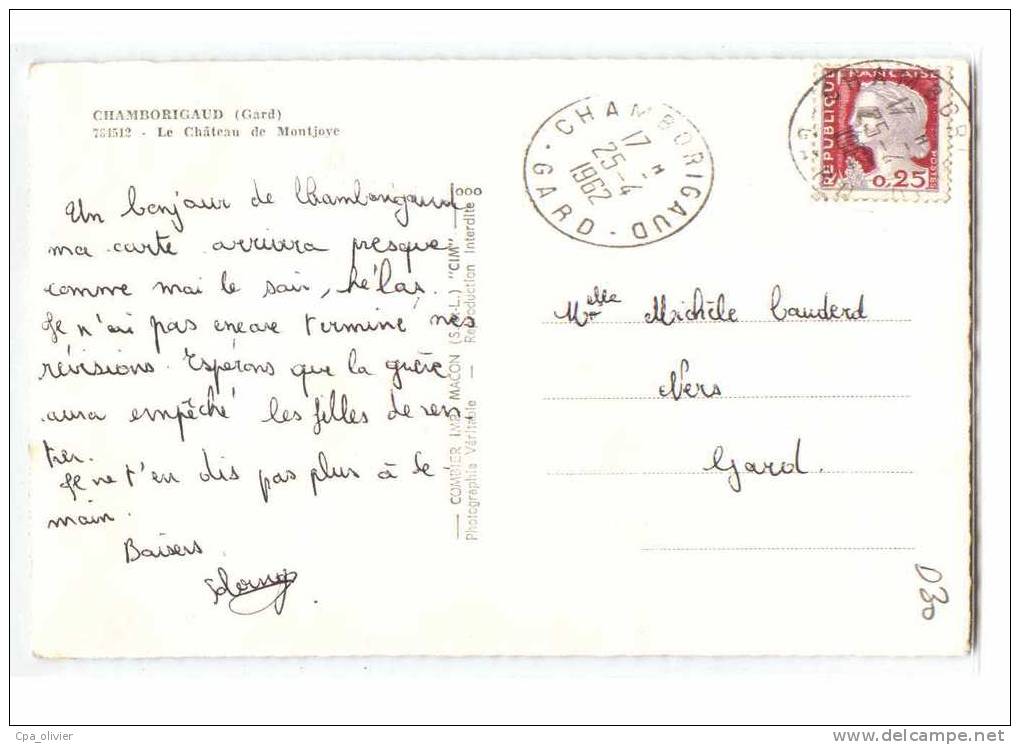 CHAMBORIGAUD (Gard)
784512 - Le Château de Montjoye
Un bonjour de Chamborigaud
ma carte arrivera presque
comme moi le soir, hélas.
Je n'ai pas encore terminé mes
révisions. Espérons que la grève
aura empêché les filles de ren
trer.
Je ne t'en dis pas plus à de
main.
Baisers
COMBIER IMP. MACON (S.A.R.L.) "CIM"
Photographie Véritable — Reproduction Interdite
CHAMBORIGAUD
17 H
25-4
1962
GARD
REPUBLIQUE FRANÇAISE
0,25
POSTES
Melle Michèle Cauderd
Ners
Gard.
D30
Cpa_olivier
www.delcampe.net